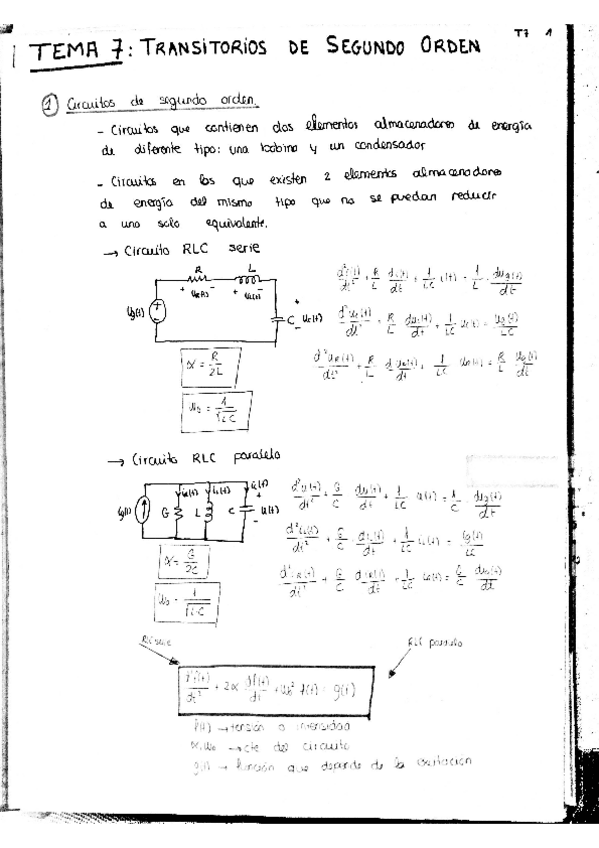 T7 1
TEMA 7: TRANSITORIOS DE SEGUNDO ORDEN
① Circuitos de segundo orden.
- Circuitos que contienen dos elementos almacenadores de energía
de diferente tipo: una bobina y un condensador
- Circuitos en los que existen 2 elementos almacenadores
de energía del mismo tipo que no se puedan reducir
a uno solo equivalente.
→ Circuito RLC serie
R L
+ u_R(t) - + u_L(t) -
u_g(t)
C + u_c(t) -
α = R/2L
ω₀ = 1/√LC
d²i(t)/dt² + R/L di(t)/dt + 1/LC i(t) = 1/L du_g(t)/dt
d²u_c(t)/dt² + R/L du_c(t)/dt + 1/LC u_c(t) = u_g(t)/LC
d²u_R(t)/dt² + R/L du_R(t)/dt + 1/LC u_R(t) = R/L du_g(t)/dt
→ Circuito RLC paralelo
G L C
+ u(t) -
α = G/2C
ω₀ = 1/√L·C
RLC serie
RLC paralelo
d²f(t)/dt² + 2α df(t)/dt + ω₀² f(t) = g(t)
f(t) → tensión o intensidad
α, ω₀ → cte del circuito
g(t) → función que depende de la excitación